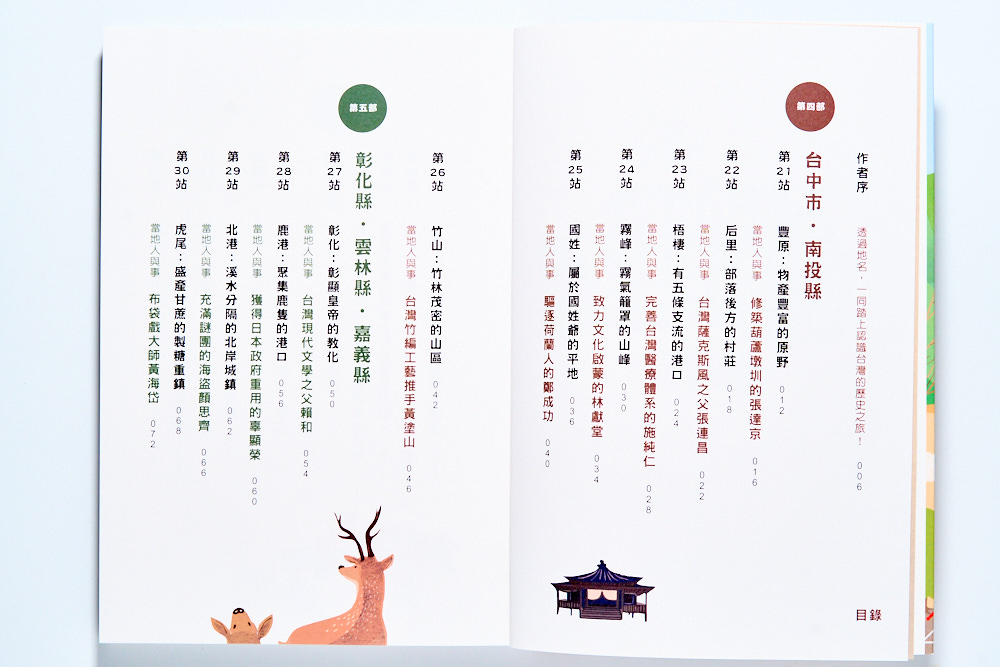 目錄
作者序 透過地名,一同踏上認識台灣的歷史之旅! 006
第四部
台中市・南投縣
第21站 豐原:物產豐富的原野 012
當地人與事 修築葫蘆墩圳的張達京 016
第22站 后里:部落後方的村莊 018
當地人與事 台灣薩克斯風之父張連昌 022
第23站 梧棲:有五條支流的港口 024
當地人與事 完善台灣醫療體系的施純仁 028
第24站 霧峰:霧氣籠罩的山峰 030
當地人與事 致力文化啟蒙的林獻堂 034
第25站 國姓:屬於國姓爺的平地 036
當地人與事 驅逐荷蘭人的鄭成功 040
第26站 竹山:竹林茂密的山區 042
當地人與事 台灣竹編工藝推手黃塗山 046
第五部
彰化縣・雲林縣・嘉義縣
第27站 彰化:彰顯皇帝的教化 050
當地人與事 台灣現代文學之父賴和 054
第28站 鹿港:聚集鹿隻的港口 056
當地人與事 獲得日本政府重用的辜顯榮 060
第29站 北港:溪水分隔的北岸城鎮 062
當地人與事 充滿謎團的海盜顏思齊 066
第30站 虎尾:盛產甘蔗的製糖重鎮 068
當地人與事 布袋戲大師黃海岱 072